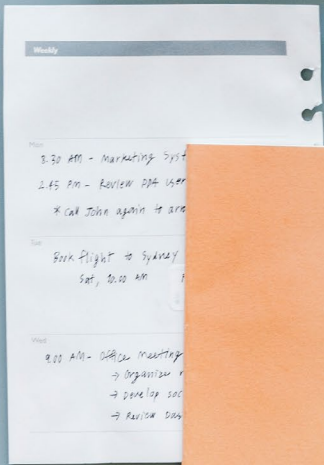 Weekly
Mon
8.30 AM - Marketing Syst
2.45 PM - Review PDA user
* Call John again to arr
Tue
Book flight to Sydney
Sat, 10.00 AM
Wed
9.00 AM - Office meeting
→ Organize
→ Develop soc
→ Review